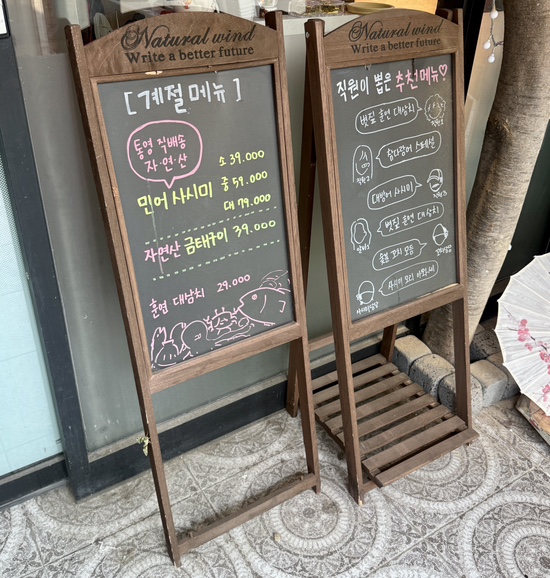 Natural wind
Write a better future
[계절메뉴]
통영 직배송
자·연·산
민어 사시미
소 39.000
중 59.000
대 79.000
자연산 금태구이 39.000
훈연 대삼치 29.000
Natural wind
Write a better future
직원이 뽑은 추천메뉴♡
볏짚 훈연 대삼치
대방어 사시미
볏짚 훈연 대삼치
꼬치 모둠